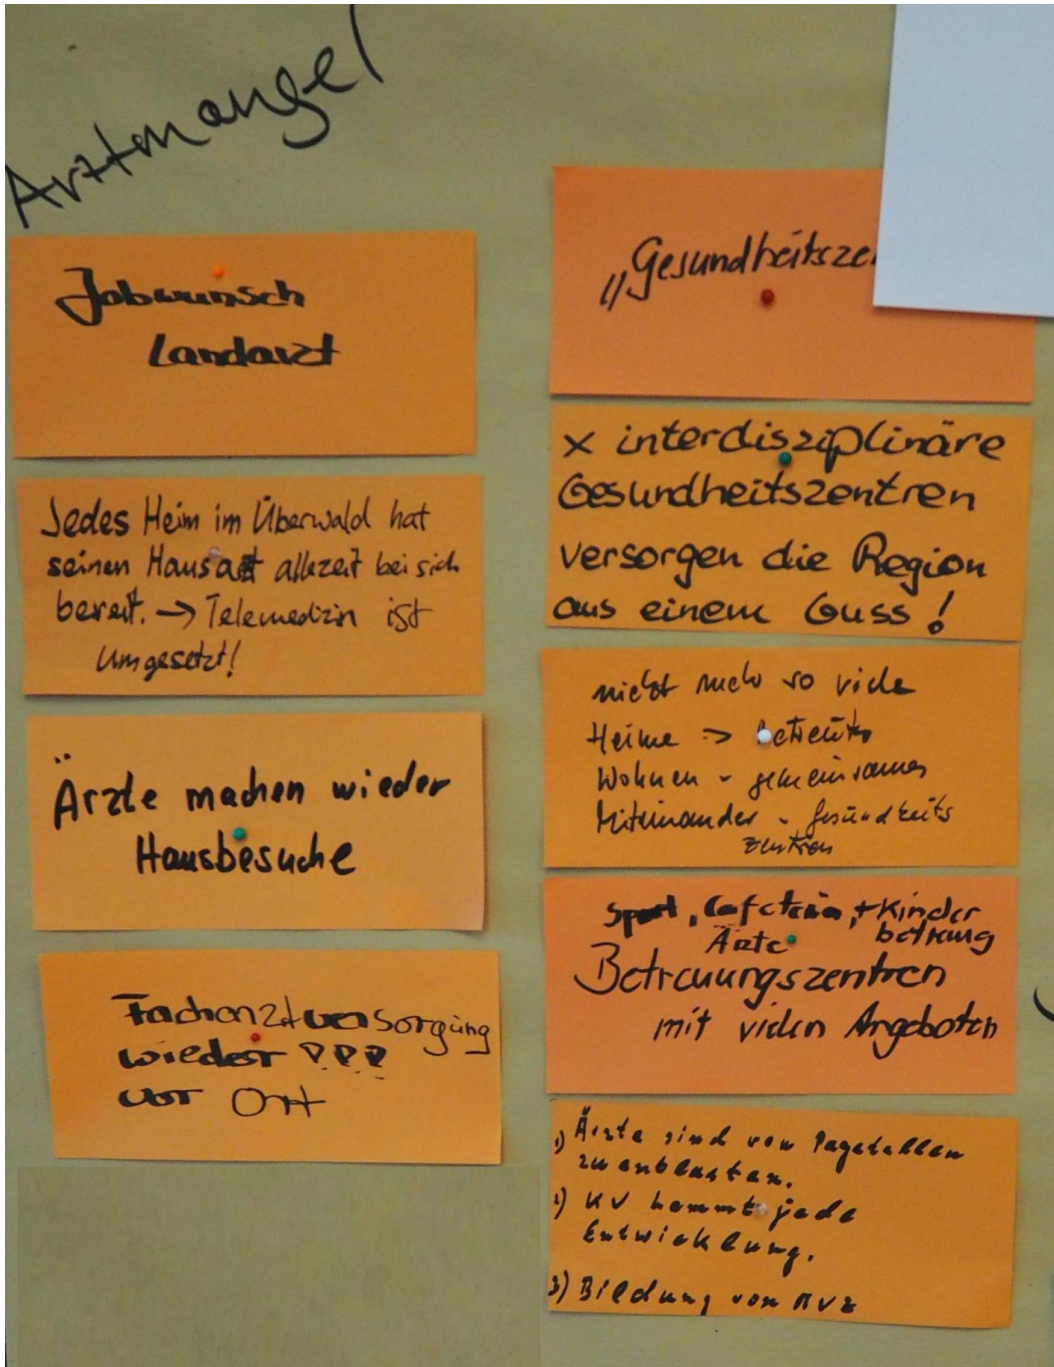 Arztmangel
Jobwunsch
Landarzt
Jedes Heim im Überwald hat
seinen Hausarzt allezeit bei sich
bereit. → Telemedizin ist
Umgesetzt!
Ärzte machen wieder
Hausbesuche
Facharztversorgung
wieder !!!
vor Ort
„Gesundheitsze
x interdisziplinäre
Gesundheitszentren
versorgen die Region
aus einem Guss!
nicht mehr so viele
Heime => Betreutes
Wohnen - gemeinsames
Miteinander - Gesundheits
zentren
Sport, Cafeteria, + Kinder
betreung
Ärzte
Betreuungszentren
mit vielen Angeboten
1) Ärzte sind von
zu entlasten.
2) KV hemmt jede
Entwicklung.
3) Bildung von MVZ